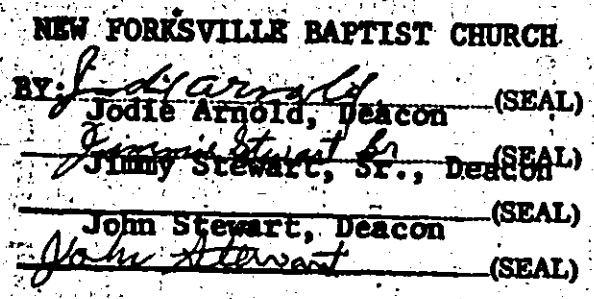 NEW FORKSVILLE BAPTIST CHURCH
BY: Jodie Arnold (SEAL)
Jodie Arnold, Deacon
Jimmie Stewart Sr (SEAL)
Jimmy Stewart, Sr., Deacon
(SEAL)
John Stewart, Deacon
John Stewart (SEAL)